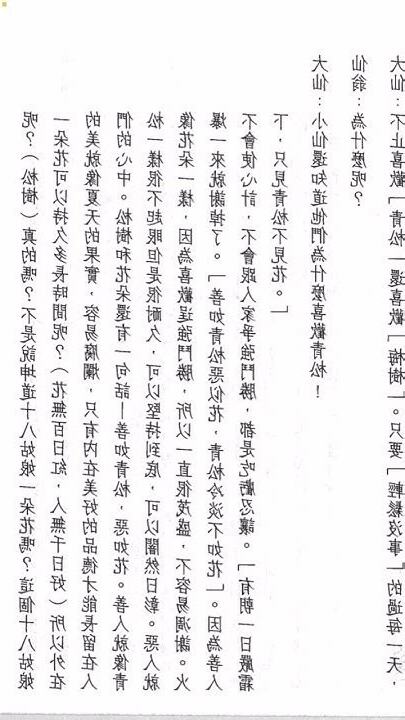 呢?(松樹)真的嗎?不是說坤道十八姑娘一朵花嗎?這個十八姑娘
一朵花可以持久多長時間呢?(花無百日紅,人無千日好)所以外在
的美就像夏天的果實,容易腐爛,只有內在美好的品德才能長留在人
們的心中。松樹和花朵還有一句話—善如青松,惡如花。善人就像青
松一樣很不起眼但是很耐久,可以堅持到底,可以闇然日彰。惡人就
像花朵一樣,因為喜歡逞強鬥勝,所以一直很茂盛,不容易凋謝。火
爆一來就謝掉了。「善如青松惡似花,青松冷淡不如花」。因為善人
不會使心計,不會跟人家爭強鬥勝,都是吃虧忍讓。「有朝一日嚴霜
下,只見青松不見花。」
大仙:小仙還知道他們為什麼喜歡青松!
仙翁:為什麼呢?
大仙:不止喜歡「青松」還喜歡「梅樹」。只要「輕鬆沒事」的過每一天,